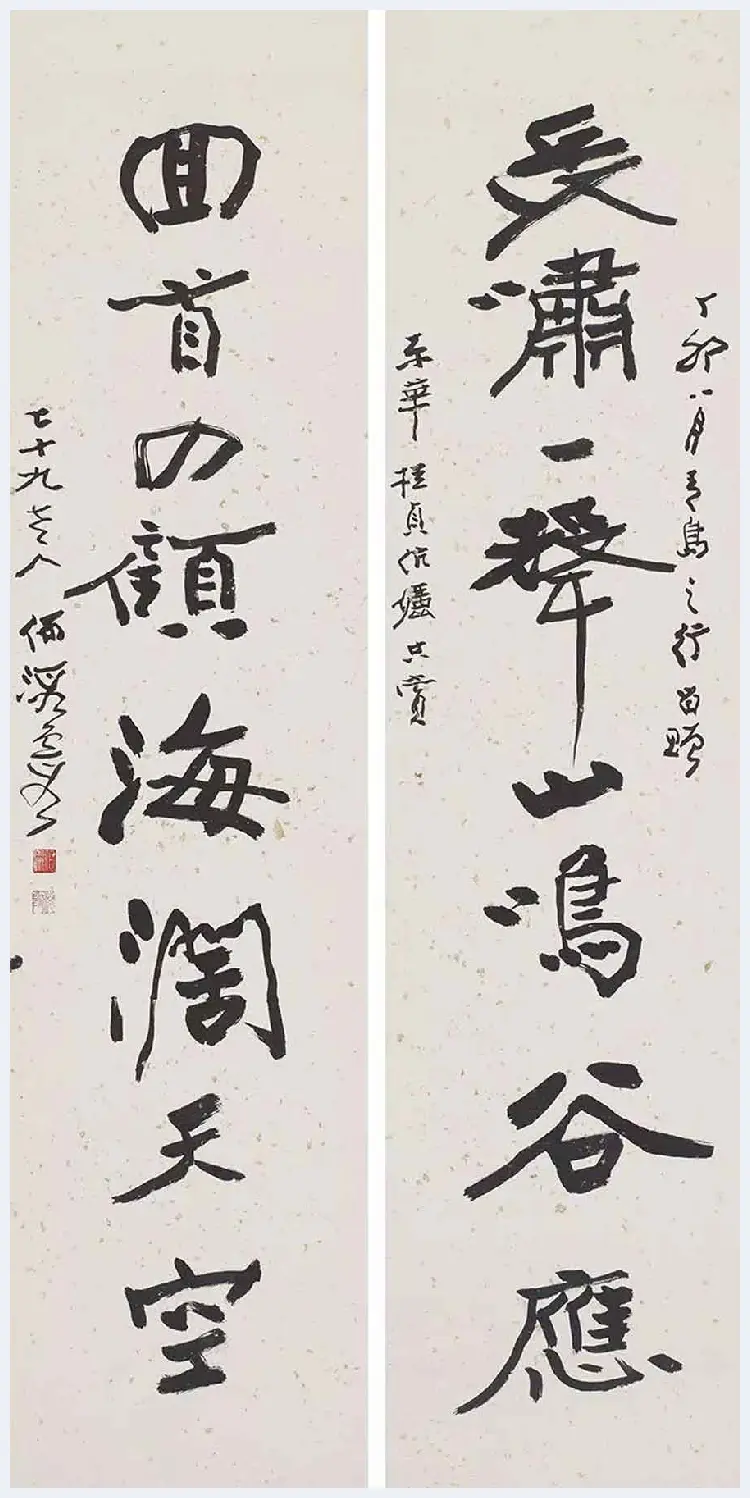 丁卯八月青島之行留贈
長嘯一聲山鳴谷應
華桂貞伉儷共賞
回首四顧海濶天空
七十九老人